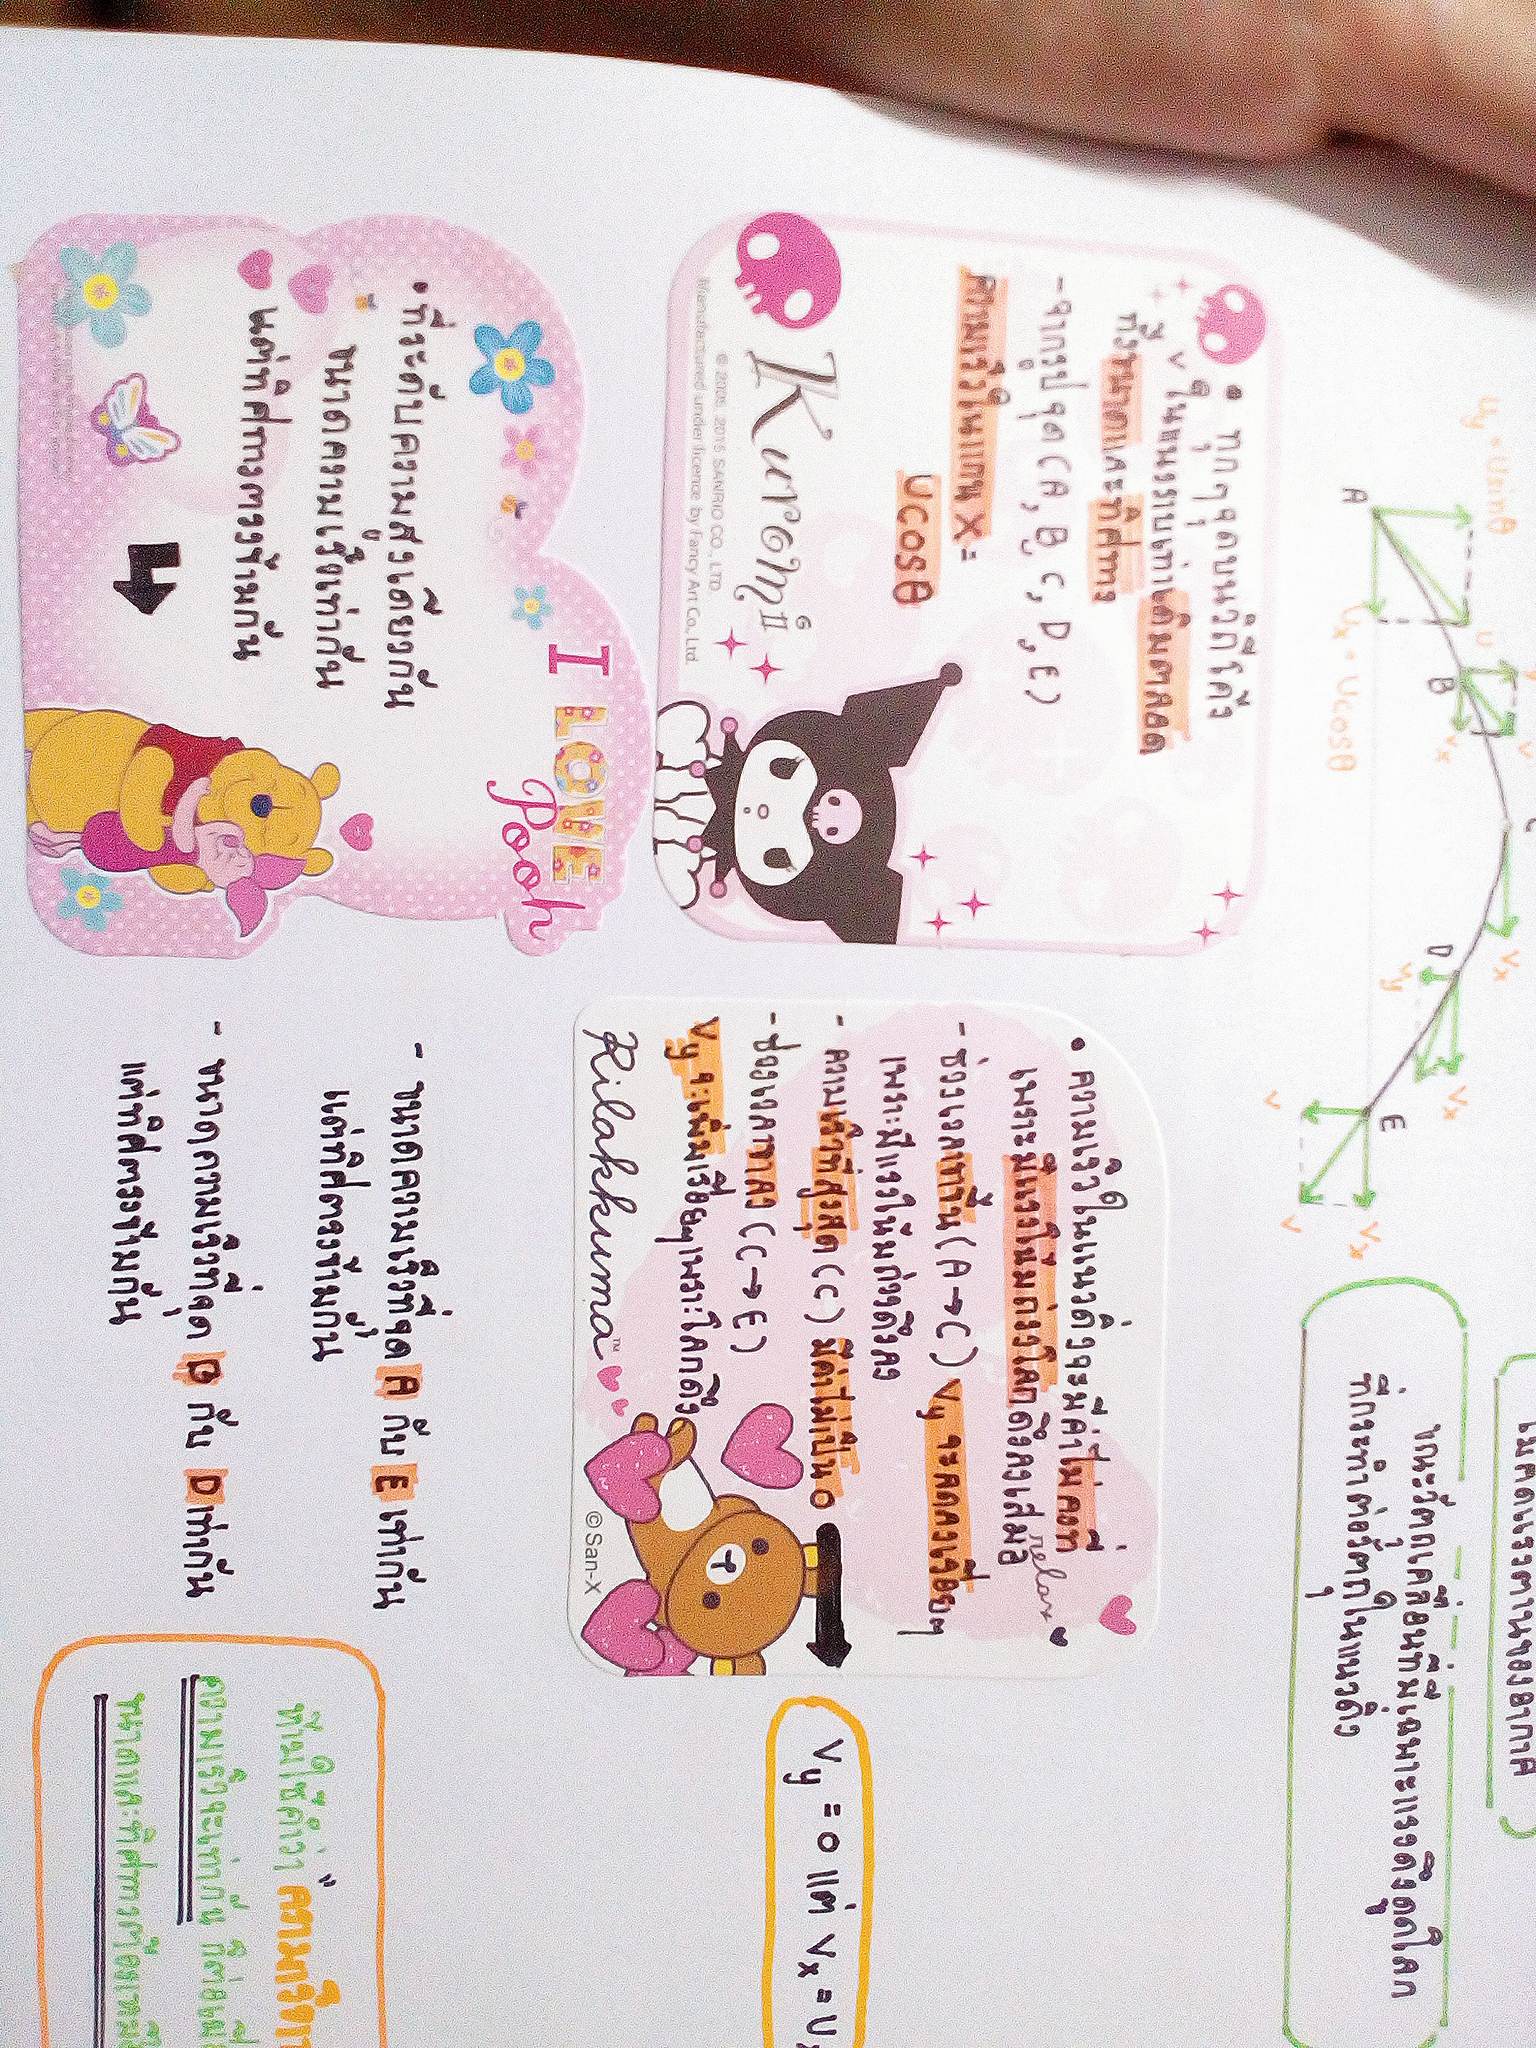 uy = usinθ
A
u
ux = ucosθ
B
v
vx
C
vx
D
vy
vx
E
v
vx
v
ขณะวัตถุเคลื่อนที่มีเฉพาะแรงดึงดูดโลก
ที่กระทำต่อวัตถุในแนวดิ่ง
ไม่คิดแรงต้านของอากาศ
• ทุกๆจุดบนวิถีโค้ง
v ในแนวราบเท่าเดิมตลอด
ทั้งขนาดและทิศทาง
-จากรูป จุด (A, B, C, D, E)
ความเร็วในแกน x =
ucosθ
Kuromi
© 2005, 2015 SANRIO CO., LTD.
Manufactured under licence by Fancy Art Co., Ltd.
• ความเร็วในแนวดิ่งจะมีค่าไม่คงที่
เพราะมีแรงโน้มถ่วงโลกดึงลงเสมอ
relax
- ช่วงเวลาขาขึ้น (A→C) Vy จะลดลงเรื่อยๆ
เพราะมีแรงโน้มถ่วงดึงลง
- ความเร็วที่สูงสุด (C) มีค่าไม่เป็น 0
-ช่วงเวลาขาลง (C→E)
Vy จะเพิ่มเรื่อยๆเพราะโลกดึง
Rilakkuma™
© San-X
Vy = 0 แต่ Vx = U
I LOVE
Pooh
•ที่ระดับความสูงเดียวกัน
ขนาดความเร็วเท่ากัน
แต่ทิศทางตรงข้ามกัน
- ขนาดความเร็วที่จุด A กับ E เท่ากัน
แต่ทิศตรงข้ามกัน
- ขนาดความเร็วที่จุด B กับ D เท่ากัน
แต่ทิศตรงข้ามกัน
ห้ามใช้คำว่า "ความเร็วเท่า
ความเร็วจะเท่ากัน ก็ต่อเมื่
ขนาดและทิศทางต้องเหมือ